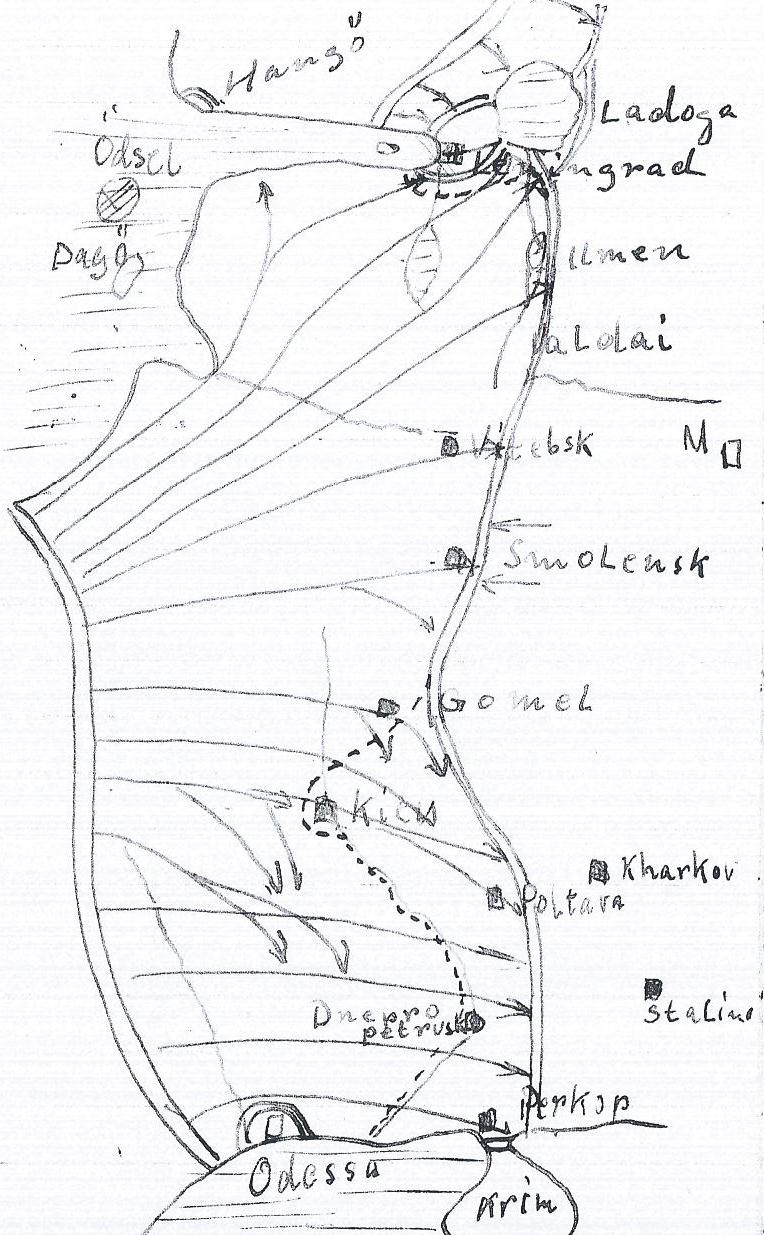 Hangö
Ladoga
Ödsel
Leningrad
Dagö
Ilmen
Valdai
Vitebsk
M
Smolensk
Gomel
Kiev
Kharkov
Poltava
Dnepro
petrusk
Stalino
Perkop
Odessa
Krim